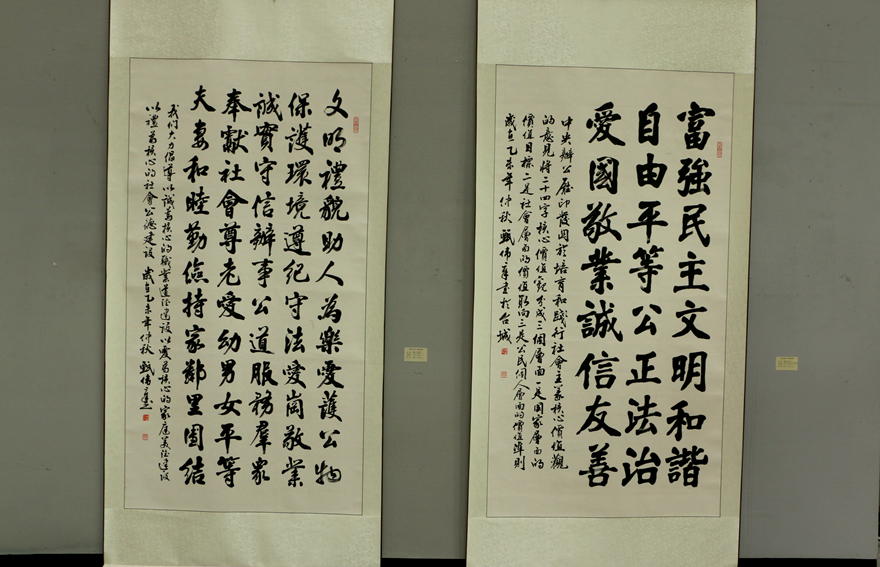 富強民主文明和諧
自由平等公正法治
愛國敬業誠信友善
中央辦公廳印發関於培育和踐行社會主義核心價值觀
的意見將二十四字核心價值觀分成三個層面一是国家層面的
價值目標二是社會層面的價值取向三是公民個人層面的價值準則
歲在乙未年仲秋甄偉書於台城
文明禮貌助人為樂愛護公物
保護環境遵紀守法愛崗敬業
誠實守信辦事公道服務羣眾
奉獻社會尊老愛幼男女平等
夫妻和睦勤儉持家鄰里團结
我們大力倡導以誠為核心的職業道德建設以愛為核心的家庭美德建设
以禮為核心的社會公德建設 歲在乙未年仲秋 甄偉